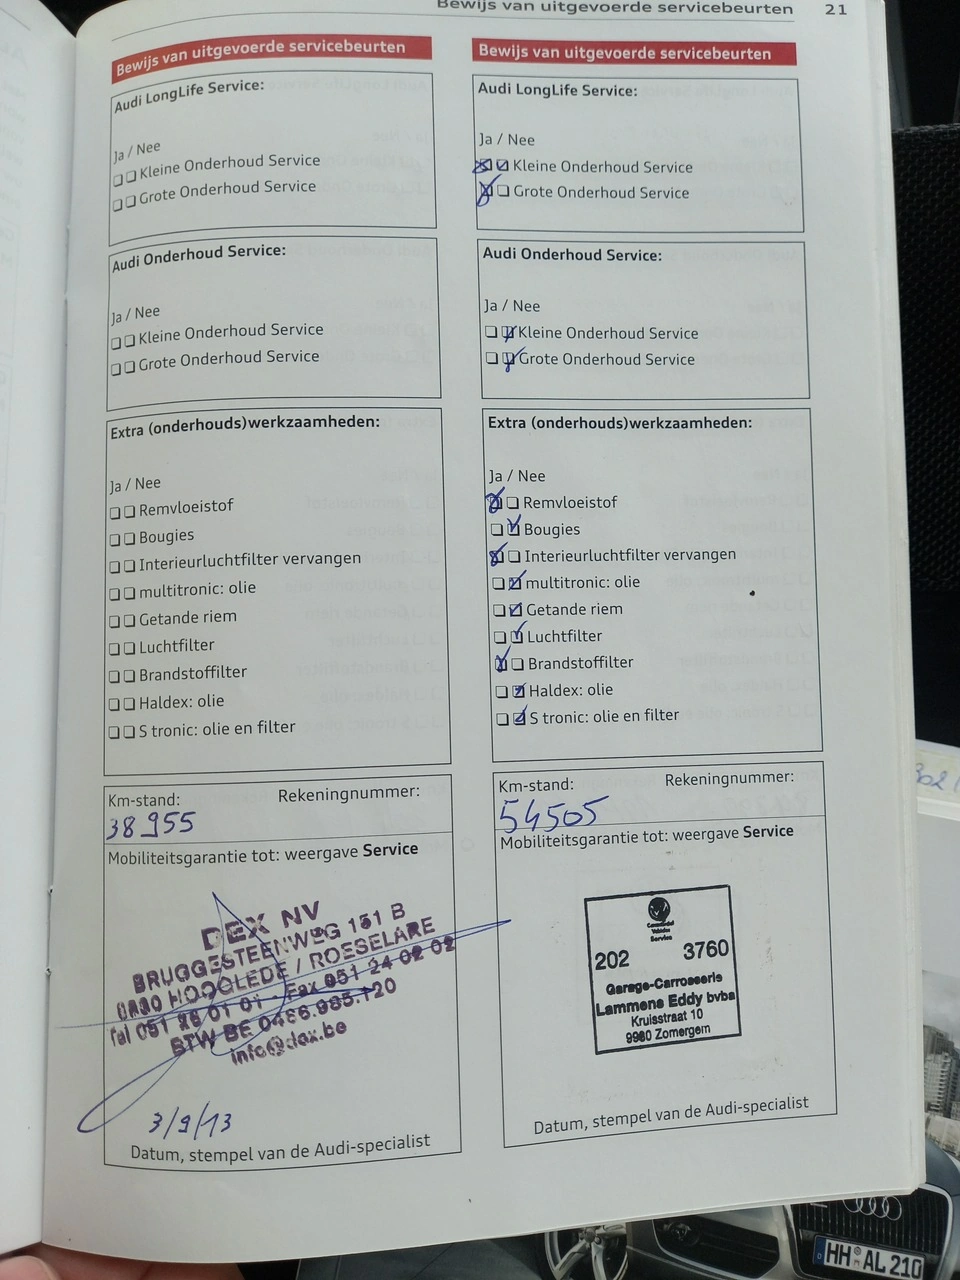 Bewijs van uitgevoerde servicebeurten 21
Bewijs van uitgevoerde servicebeurten
Audi LongLife Service:
Ja / Nee
Kleine Onderhoud Service
Grote Onderhoud Service
Audi Onderhoud Service:
Ja / Nee
Kleine Onderhoud Service
Grote Onderhoud Service
Extra (onderhouds)werkzaamheden:
Ja / Nee
Remvloeistof
Bougies
Interieurluchtfilter vervangen
multitronic: olie
Getande riem
Luchtfilter
Brandstoffilter
Haldex: olie
S tronic: olie en filter
Km-stand: Rekeningnummer:
38955
Mobiliteitsgarantie tot: weergave Service
DEX NV
BRUGGESTEENWEG 151 B
8830 HOOGLEDE / ROESELARE
Tel 051 26 01 01 - Fax 051 24 02 02
BTW BE 0466.985.120
info@dex.be
3/9/13
Datum, stempel van de Audi-specialist
Bewijs van uitgevoerde servicebeurten
Audi LongLife Service:
Ja / Nee
Kleine Onderhoud Service
Grote Onderhoud Service
Audi Onderhoud Service:
Ja / Nee
Kleine Onderhoud Service
Grote Onderhoud Service
Extra (onderhouds)werkzaamheden:
Ja / Nee
Remvloeistof
Bougies
Interieurluchtfilter vervangen
multitronic: olie
Getande riem
Luchtfilter
Brandstoffilter
Haldex: olie
S tronic: olie en filter
Km-stand: Rekeningnummer:
54505
Mobiliteitsgarantie tot: weergave Service
Commercial
Vehicles
Service
202 3760
Garage-Carrosserie
Lammens Eddy bvba
Kruisstraat 10
9930 Zomergem
Datum, stempel van de Audi-specialist
HH AL 210